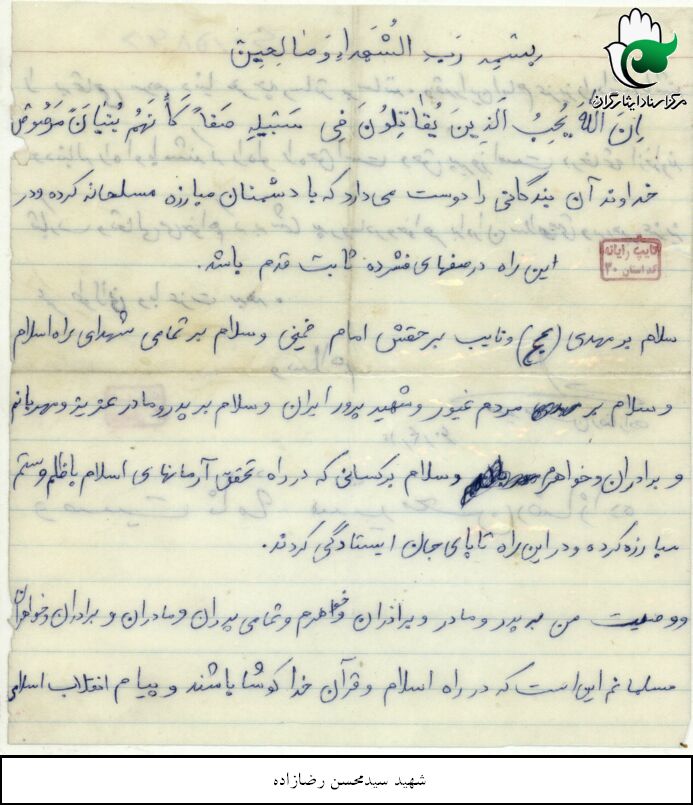 مرکز اسناد ایثارگران
بِسْمِ رَبِّ الشُّهَداءِ وَ صالِحین
اِنَّ اللّهَ یُحِبُ الَّذینَ یُقاتِلُون فِی سَبیلِهِ صَفاً کَأَنَّهُم بُنیانٌ مَرْصُوصْ
خداوند آن بندگانی را دوست می دارد که با دشمنان مبارزه مسلحانه کرده و در
این راه در صفهای فشرده ثابت قدم باشد.
تایپ رایانه
کد استان ۳۰
سلام بر مهدی (عج) و نایب برحقش امام خمینی و سلام بر تمامی شهدای راه اسلام
و سلام بر مردم غیور و شهید پرور ایران و سلام بر پدر و مادر عزیز و مهربانم
و برادران و خواهرم و سلام برکسانی که در راه تحقق آرمانهای اسلام با ظلم و ستم
مبارزه کرده و در این راه تا پای جان ایستادگی کردند.
و وصیت من بر پدر و مادر و برادران و خواهرم و تمامی پدران و مادران و برادران و خواهران
مسلمانم این است که در راه اسلام و قرآن خدا کوشا باشند و پیام انقلاب اسلامی
شهید سیدمحسن رضازاده